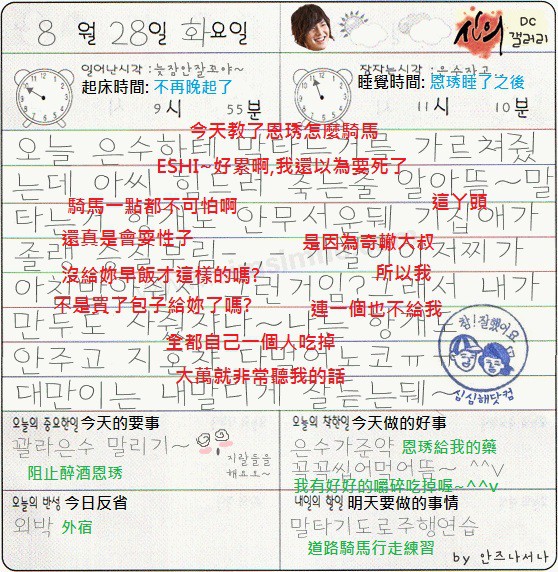 8 월 28일 화요일
신의 DC 갤러리
일어난시각 : 늦잠안잘꼬야~
잠자는시각 : 은수자고
起床時間: 不再晚起了
睡覺時間: 恩琇睡了之後
9시 55분
11시 10분
今天教了恩琇怎麼騎馬
오늘 은수한테 말타는거를 가르쳐줬
ESHI~好累啊,我還以為要死了
는데 아씨 힘드러 죽는줄 알아뜸~말
騎馬一點都不可怕啊
這丫頭
타는거 안무서운뒈 기집애가
還真是會耍性子
是因為奇轍大叔
졸랭
沒給妳早飯才這樣的嗎?
所以我
그래서 내가
不是買了包子給妳了嗎?
這一個也不給我
만두도 나는
全都自己一個人吃掉
안주고 지혼자 다먹어노코ㅠㅠ
大萬就非常聽我的話
대만이는 잘듣는뒈~
참!잘했어요
심심해닷컴
오늘의 중요한일 今天的要事
꽐라은수 말리기~
阻止醉酒恩琇
지랄들을 해요요~
오늘의 착한일 今天做的好事
은수가준약 恩琇給我的藥
꼭꼭씹어먹어뜸~ ^^v
我有好好的嚼碎吃掉喔~^^v
오늘의 반성 今日反省
외박 外宿
내일의 할일 明天要做的事情
말타기도로주행연습
道路騎馬行走練習
by 안즈나서나